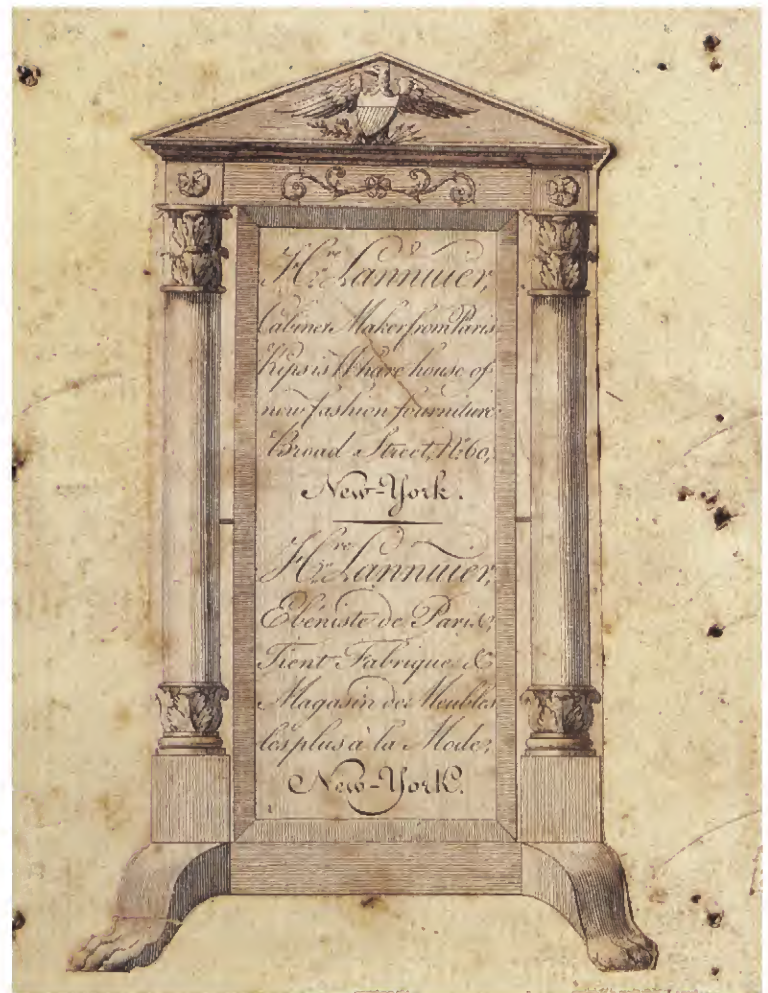 H.re Lannuier,
Cabinet Maker from Paris
Kips is Whare house of
new fashion fourniture
Broad Street, No. 60,
New-York.
H.re Lannuier,
Ebéniste de Paris,
Tient Fabrique &
Magasin de Meubles
les plus à la Mode,
New-York.